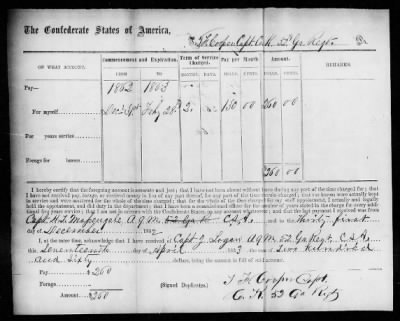 The Confederate States of America,
To T. H. Cooper Capt Co K 52d Ga Regt. Dr.
ON WHAT ACCOUNT.
Commencement and Expiration.
Term of Service Charged.
Pay per Month
Amount.
REMARKS
FROM
TO
MONTHS.
DAYS.
DOLLS.
CENTS.
DOLLS.
CENTS.
Pay—
1862
1863
For myself
Dec. 31st
Feby 28th
2
130 00
260 00
years service
Forage for horses
260 00
I hereby certify that the foregoing account is accurate and just; that I have not been absent without leave during any part of the time charged for; that I have not received pay, forage, or received money in lieu of any part thereof, for any part of the time therein charged; that the horses were actually kept
in the service and were mustered for the whole of the time charged; that for the whole of the time charged for my staff appointment, I actually and legally held the appointment, and did duty in the department; that I have been a commissioned officer for the number of years stated in the charge for every additional five years service; that I am not in arrears with the Confederate States, on any account whatsoever; and that the last payment I received was from
Capt. A. Q. M. 52 Ga Regt C.S.A. and to the thirty first
day of December 1862
I, at the same time, acknowledge that I have received of Capt J. Logan A Q M 52 Ga Regt. C.S.A.
this Seventeenth day of April 1863 Two Hundred
and Sixty dollars, being the amount in full of said account.
Pay $ 260
Forage
Amount $260
(Signed Duplicates.)
T H Cooper Capt.
Co. K. 52 Ga Regt